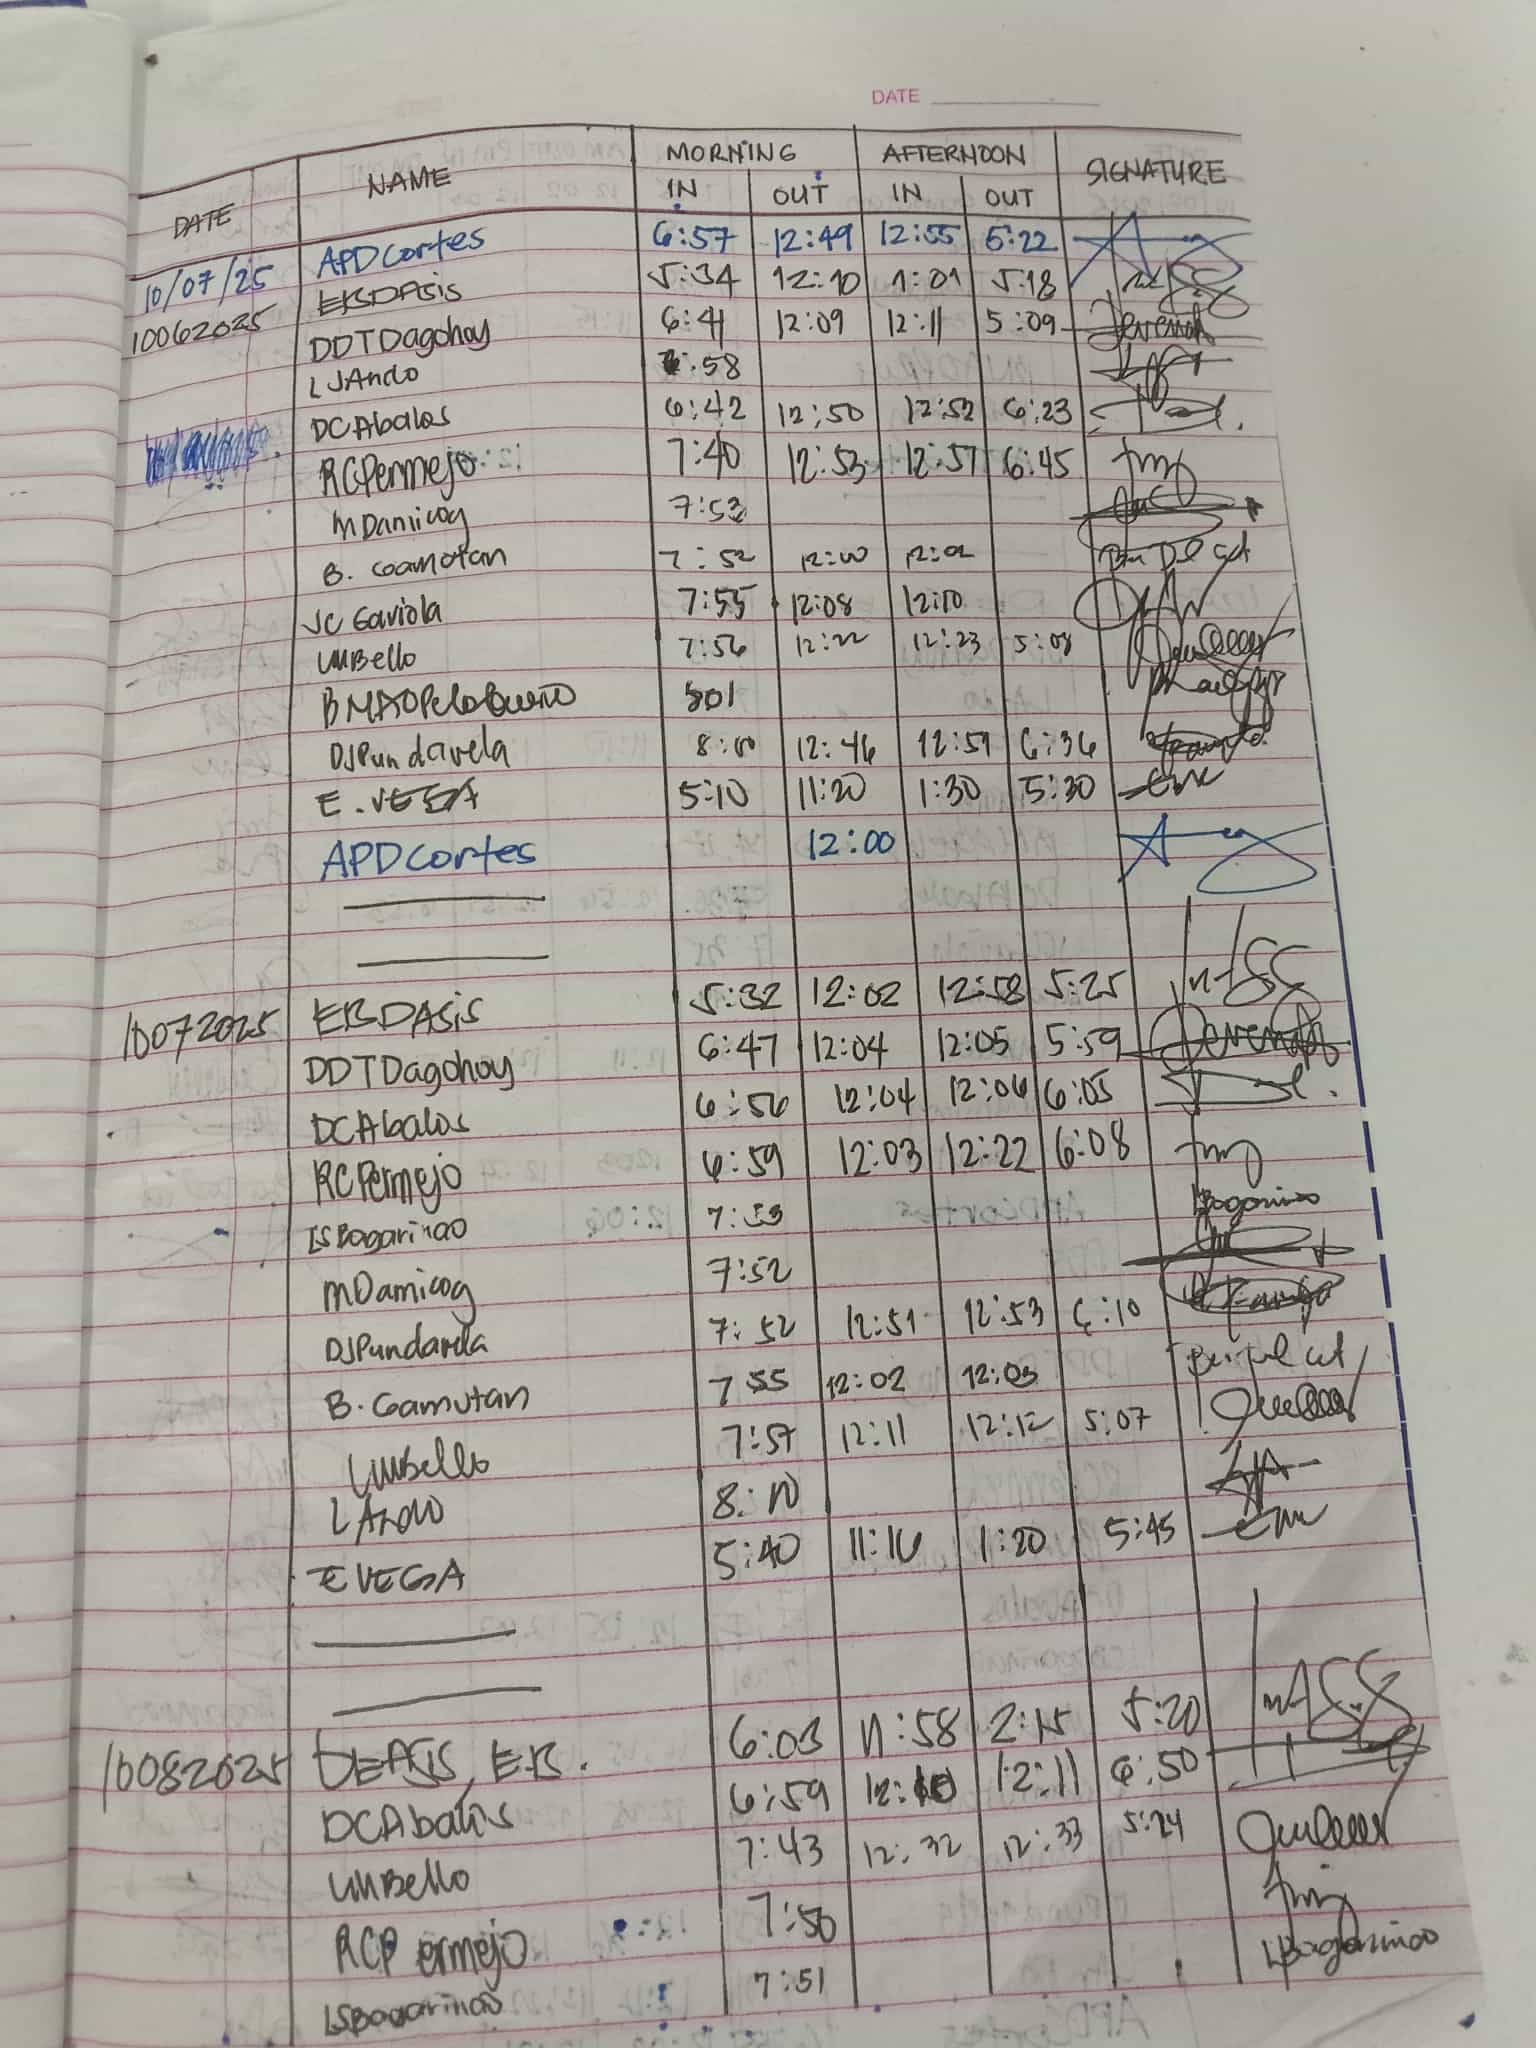 DATE
DATE NAME MORNING AFTERNOON SIGNATURE
IN OUT IN OUT
10/07/25 APDCortes 6:57 12:49 12:55 5:22
10062025 EBDASis 5:34 12:10 1:01 5:18
DDTDagohoy 6:41 12:09 12:11 5:09
LJAndo :58
DCAbalos 6:42 12:50 12:52 6:23
RCPermejo 7:40 12:53 12:57 6:45
MDamicog 7:53
B. Gamutan 7:52 12:00 12:02
JC Gaviola 7:55 12:08 12:10
LMBello 7:56 12:22 12:23 5:08
801
DJPundavela 8:00 12:46 12:59 6:36
E. VEGA 5:10 11:20 1:30 5:30
APDCortes 12:00
10072025 EBDASis 5:32 12:02 12:58 5:25
DDTDagohoy 6:47 12:04 12:05 5:59
DCAbalos 6:56 12:04 12:06 6:05
RCPermejo 6:59 12:03 12:22 6:08
LSBagarinao 7:53 LSBagarinao
MDamicog 7:52
DJPundavela 7:52 12:51 12:53 6:10
B. Gamutan 7 55 12:02 12:03
LMBello 7:57 12:11 12:12 5:07
LAndo 8:10
E VEGA 5:40 11:16 1:20 5:45
10082025 DEASIS, E.B. 6:03 11:58 2:15 5:20
DCAbalos 6:59 12:10 12:11 6:50
LMBello 7:43 12:32 12:33 5:24
RCPermejo 7:50
LSBagarinao 7:51 LSBagarinao